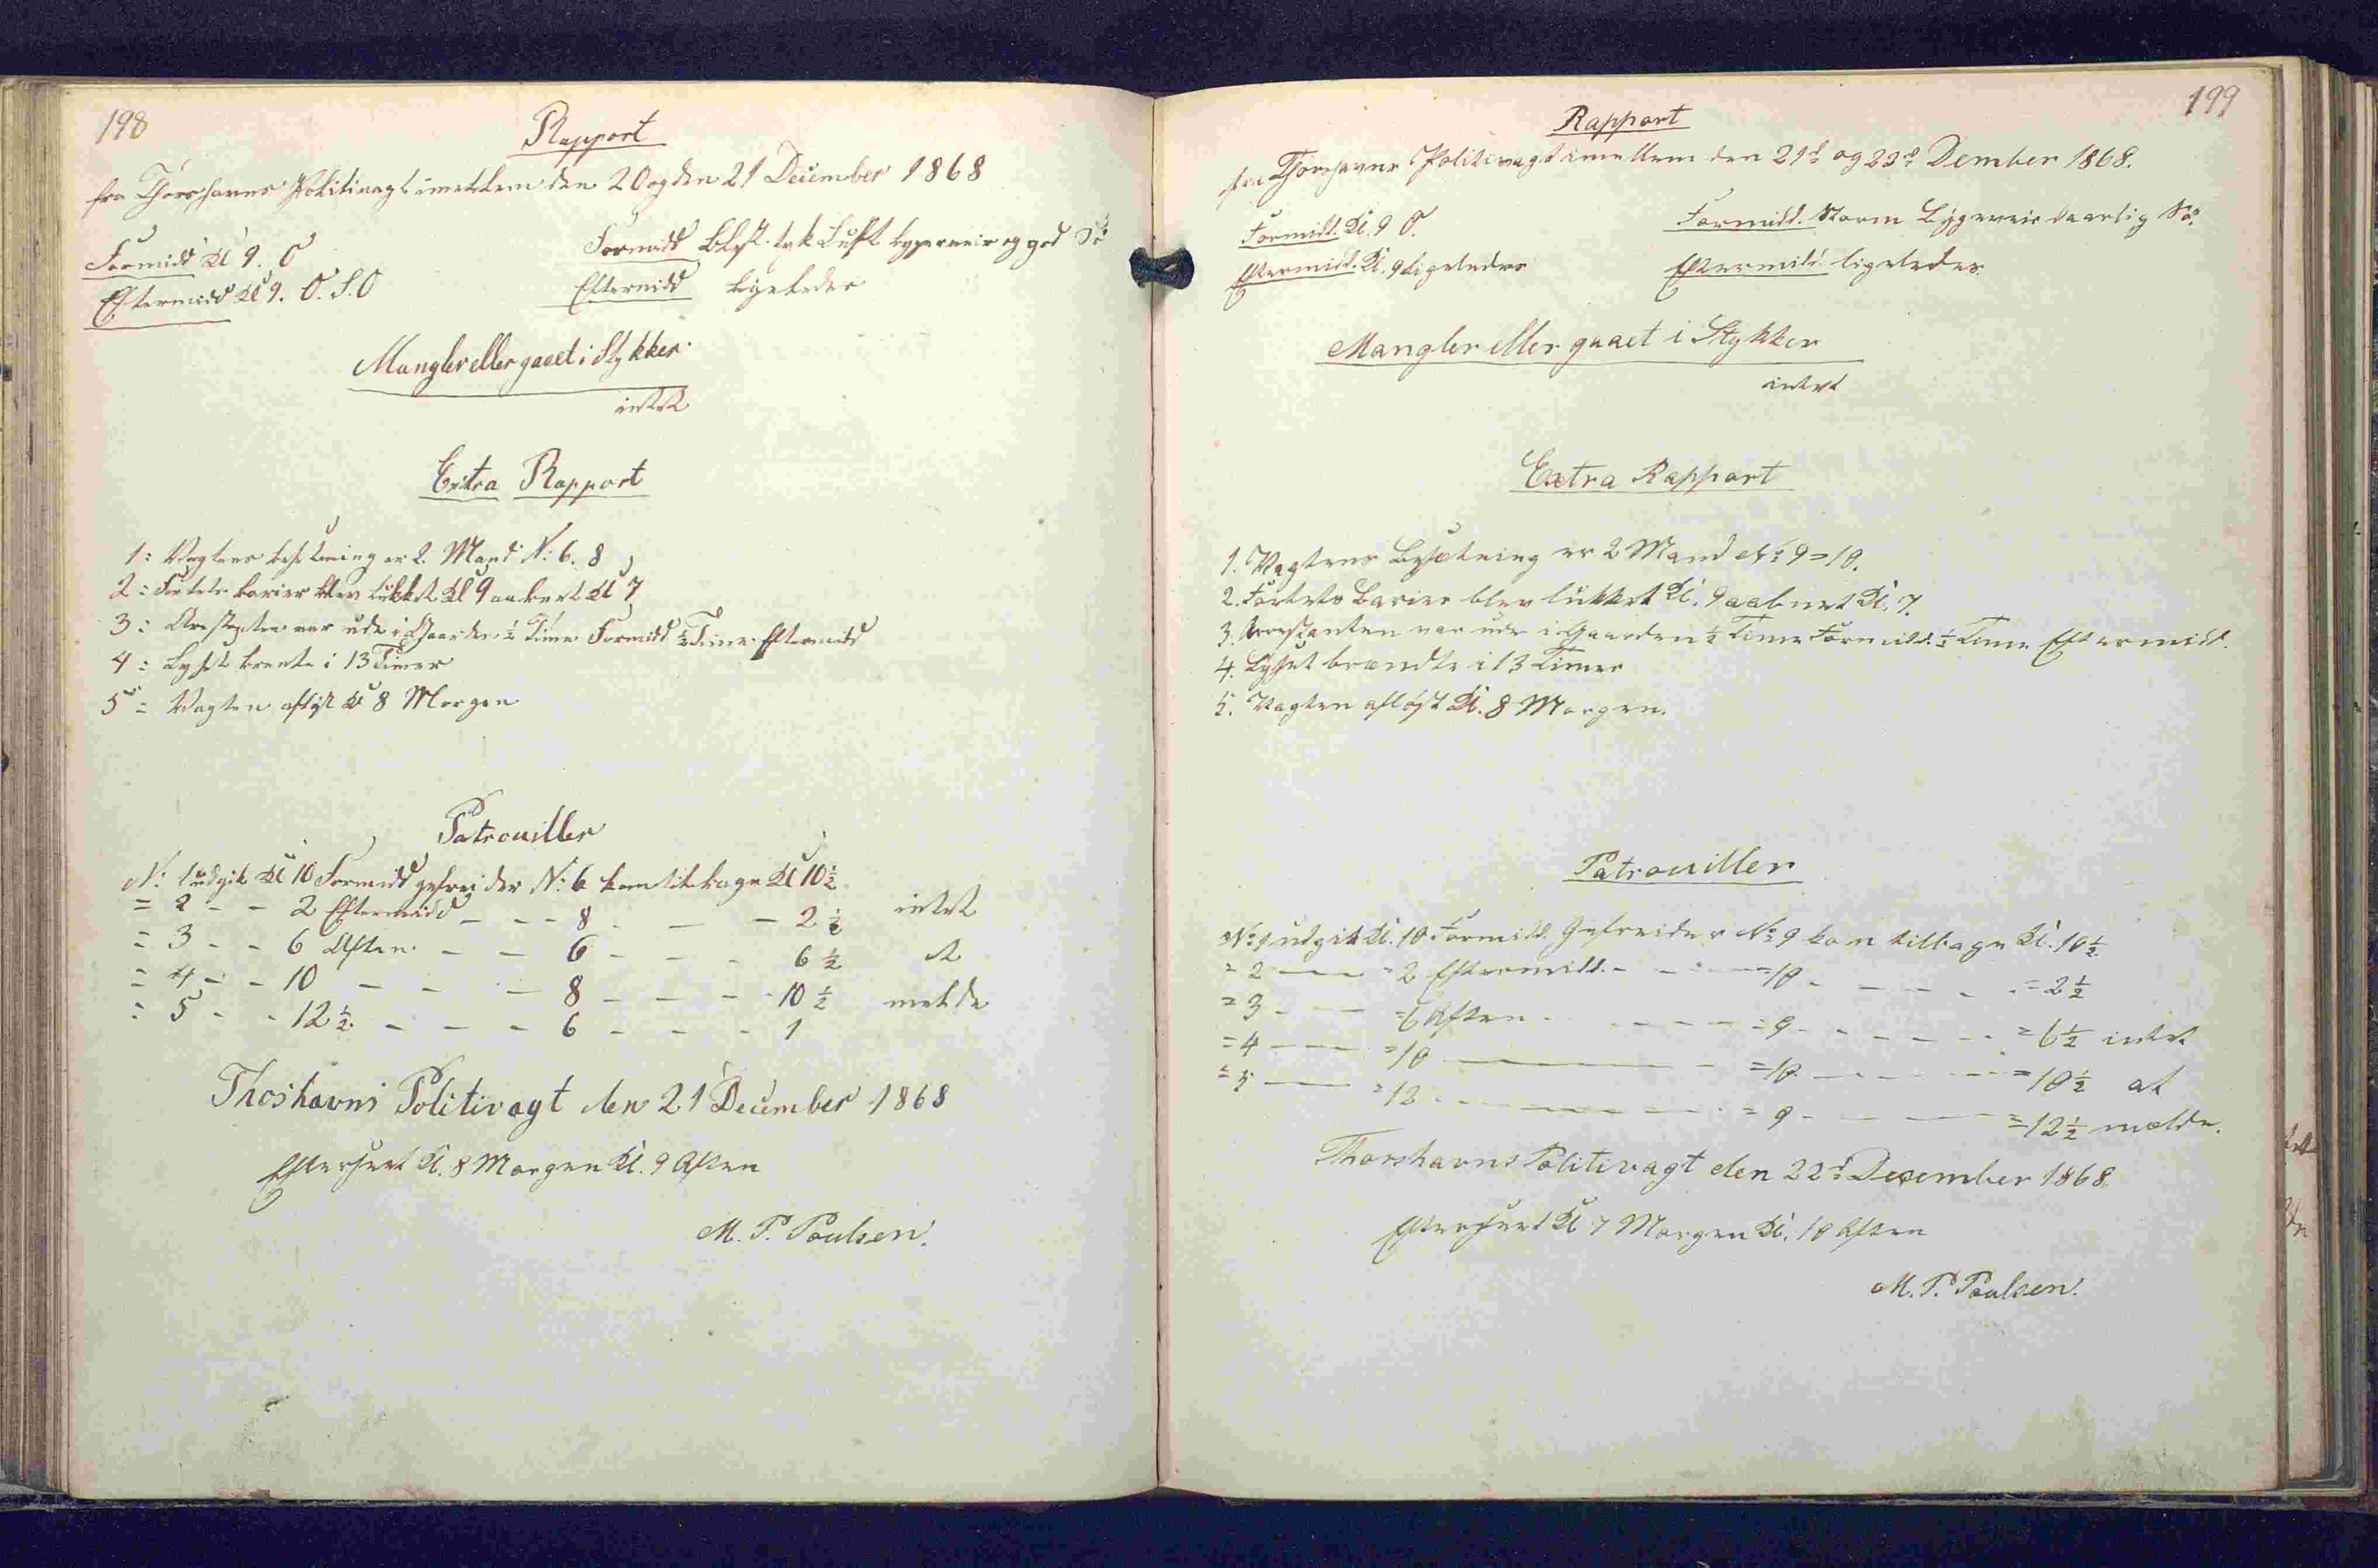 198
Rapport
fra Thorshavns Politivagt imellem den 20 og den 21 December 1868
Formidd Kl 9. O
Formidd Blæst tyk Luft bygeveir og god Sö
Eftermidd Kl 9. O. S. O
Eftermidd ligeledes
Mangler eller gaaet i Stykker
intet
Extra Rapport
1: Vagtens besetning er 2. Mand N: 6. 8
2: Fortets barier blev lukket Kl 9 aabnet Kl 7
3: Arestanten var ude i Gaarden ½ Time Formidd ½ Time Eftermidd
4: Lyset brente i 13 Timer
5= Vagten afløst Kl 8 Morgen
Patrouiller
N: 1 udgik Kl 10 Formidd gefreider N: 6 kom tilbage Kl 10½
= 2 - - 2 Eftermidd - - - 8 - - - 2½ intet
= 3 - - 6 Aften - - 6 - - - 6½ at
= 4 - - 10 - - - 8 - - - 10½ melde
: 5 - - 12½ - - - 6 - - - 1
Thoshavns Politivagt den 21 December 1868
Efterseet Kl. 8 Morgen Kl. 9 Aften
M. P. Poulsen.
199
Rapport
fra Thorshavns Politivagt imellem den 21d og 22d Dember 1868.
Formidd. Kl. 9 O.
Formidd. Storm Bygeveir daarlig Sö.
Eftermidd. Kl. 9 ligeledes
Eftermidd. ligeledes
Mangler eller gaaet i Stykker
intet
Extra Rapport
1. Vagtens Besætning er 2 Mand No 9 = 10.
2. Fortets Barier blev lukket Kl. 9 aabnet Kl. 7.
3. Arrestanten var ude i Gaarden ½ Time Formidd. ½ Time Eftermidd.
4. Lyset brændte i 13 Timer
5. Vagten afløst Kl. 8 Morgen.
Patrouiller
No 1 udgik Kl. 10 Formidd. Gefreider No 9 kom tilbage Kl. 10½
= 2 - - = 2 Eftermidd. - - = 10 - - - = 2½
= 3 - - = 6 Aften - - - = 9 - - - = 6½ intet
= 4 - - = 10 - - - = 10 - - - = 10½ at
= 5 - - = 12 - - - = 9 - - - = 12½ melde.
Thorshavns Politivagt den 22d December 1868.
Efterseet Kl 7 Morgen Kl. 10 Aften
M. P. Poulsen.